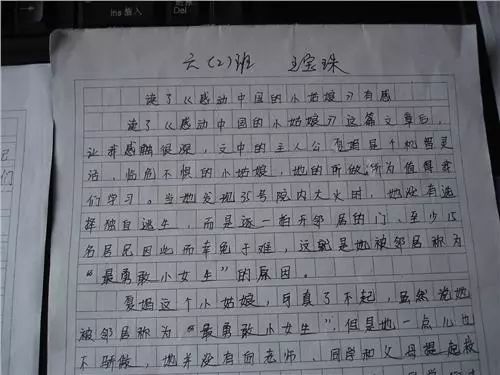 Ins 插入
Del
六(2)班 王宝珠
读了《感动中国的小姑娘》有感
读了《感动中国的小姑娘》这篇文章后,
让我感触很深,文中的主人公夏娟是个机智灵
活,临危不惧的小姑娘,她的所做所为值得我
们学习。当她发现35号院内大火时,她没有选
择独自逃生,而是逐一拍开邻居的门、至少15
名居民因此而幸免于难,这就是她被邻居称为
“最勇敢小女生”的原因。
夏娟这个小姑娘,可真了不起,虽然说她
被邻居称为“最勇敢小女生”,但是她一点儿也
不骄傲,她并没有向老师、同学和父母提起救